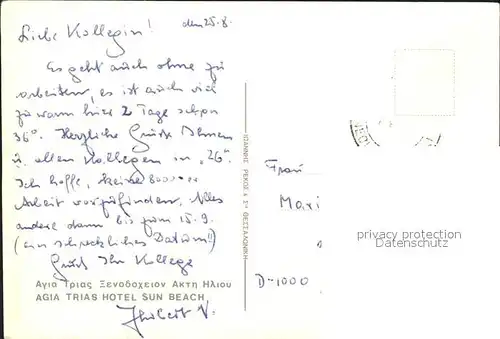 den 25.8.
Liebe Kollegin!
Es geht auch ohne zu
arbeiten, es ist auch viel
zu warm hier 2 Tage schon
36°. Herzliche Grüße Ihnen
u. allen Kollegen in "26".
Ich hoffe, keine
Arbeit vorzufinden. Alles
andere dann bis zum 15.9.
(ein schreckliches Datum!!)
Gruß Ihr Kollege
Αγια Τριας Ξενοδοχειον Ακτη Ηλιου
AGIA TRIAS HOTEL SUN BEACH
V.
ΙΩΑΝΝΗΣ ΡΕΚΟΣ & Σια ΘΕΣΣΑΛΟΝΙΚΗ
Frau
Maxi
privacy protection
Datenschutz
D-1000